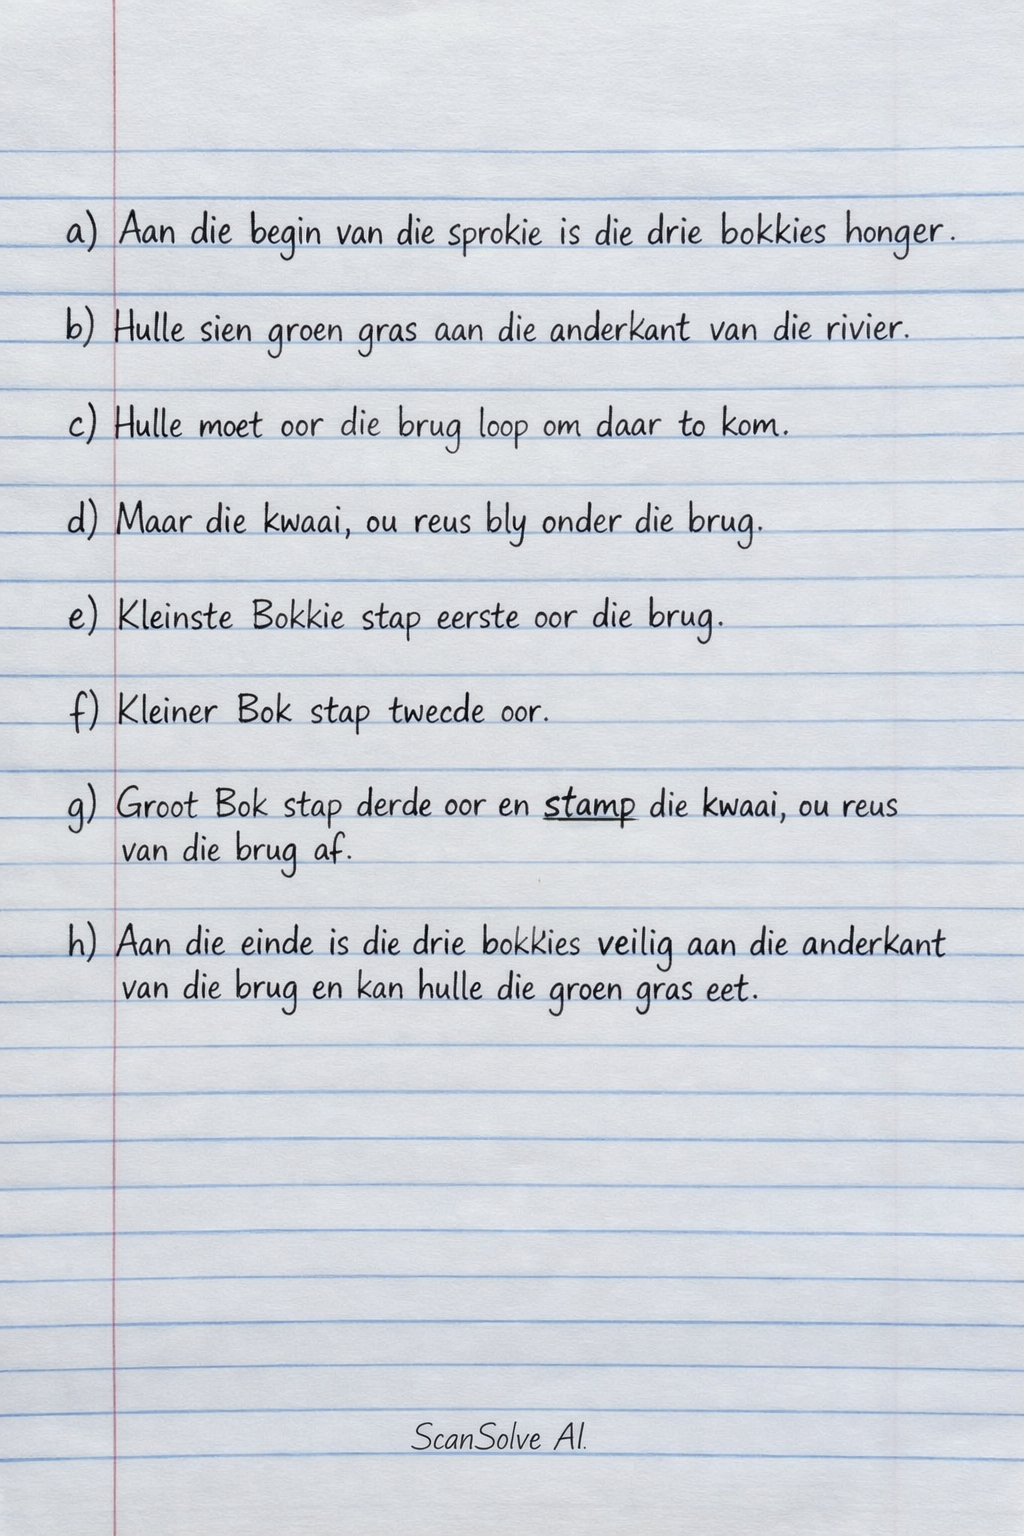 a) Aan die begin van die sprokie is die drie bokkies honger.
b) Hulle sien groen gras aan die anderkant van die rivier.
c) Hulle moet oor die brug loop om daar to kom.
d) Maar die kwaai, ou reus bly onder die brug.
e) Kleinste Bokkie stap eerste oor die brug.
f) Kleiner Bok stap twecde oor.
g) Groot Bok stap derde oor en stamp die kwaai, ou reus
van die brug af.
h) Aan die einde is die drie bokkies veilig aan die anderkant
van die brug en kan hulle die groen gras eet.
ScanSolve AI.